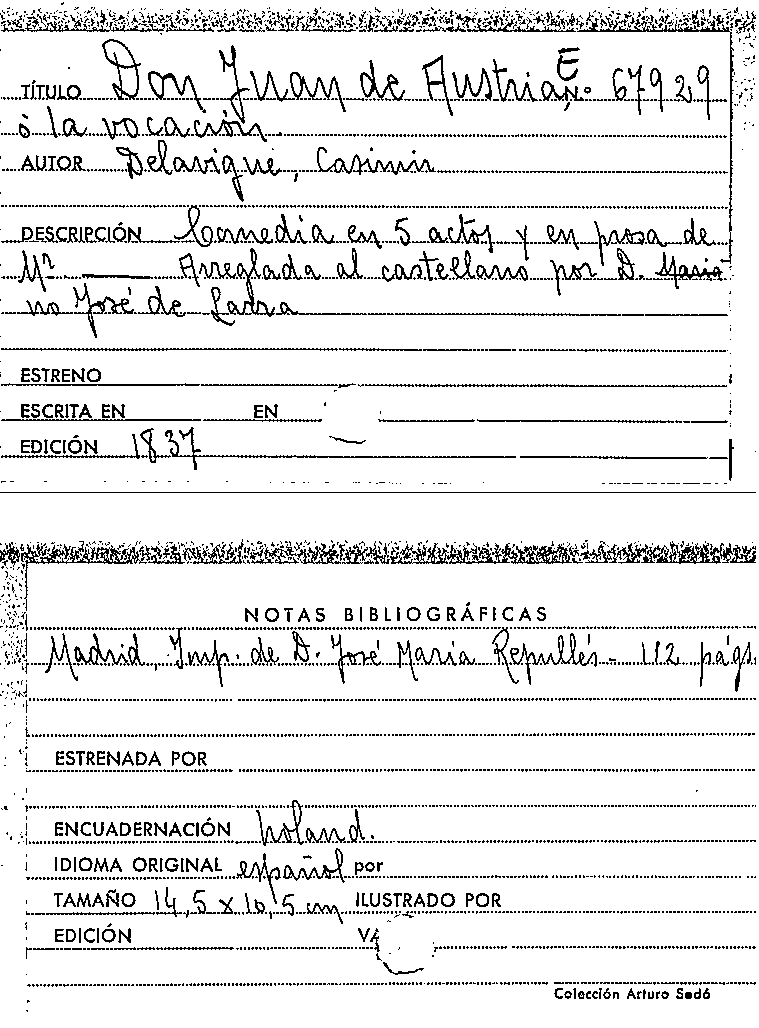 TÍTULO Don Juan de Austria E N.º 67929
ó la vocación.
AUTOR Delavigne, Casimir
DESCRIPCIÓN Comedia en 5 actos y en prosa de
Mr. ——— Arreglada al castellano por D. Maria-
no José de Larra
ESTRENO
ESCRITA EN EN
EDICIÓN 1837
NOTAS BIBLIOGRÁFICAS
Madrid, Imp. de D. José Maria Repullés - 112 págs.
ESTRENADA POR
ENCUADERNACIÓN holand.
IDIOMA ORIGINAL español por
TAMAÑO 14,5 x 10,5 cm ILUSTRADO POR
EDICIÓN
Colección Arturo Sedó